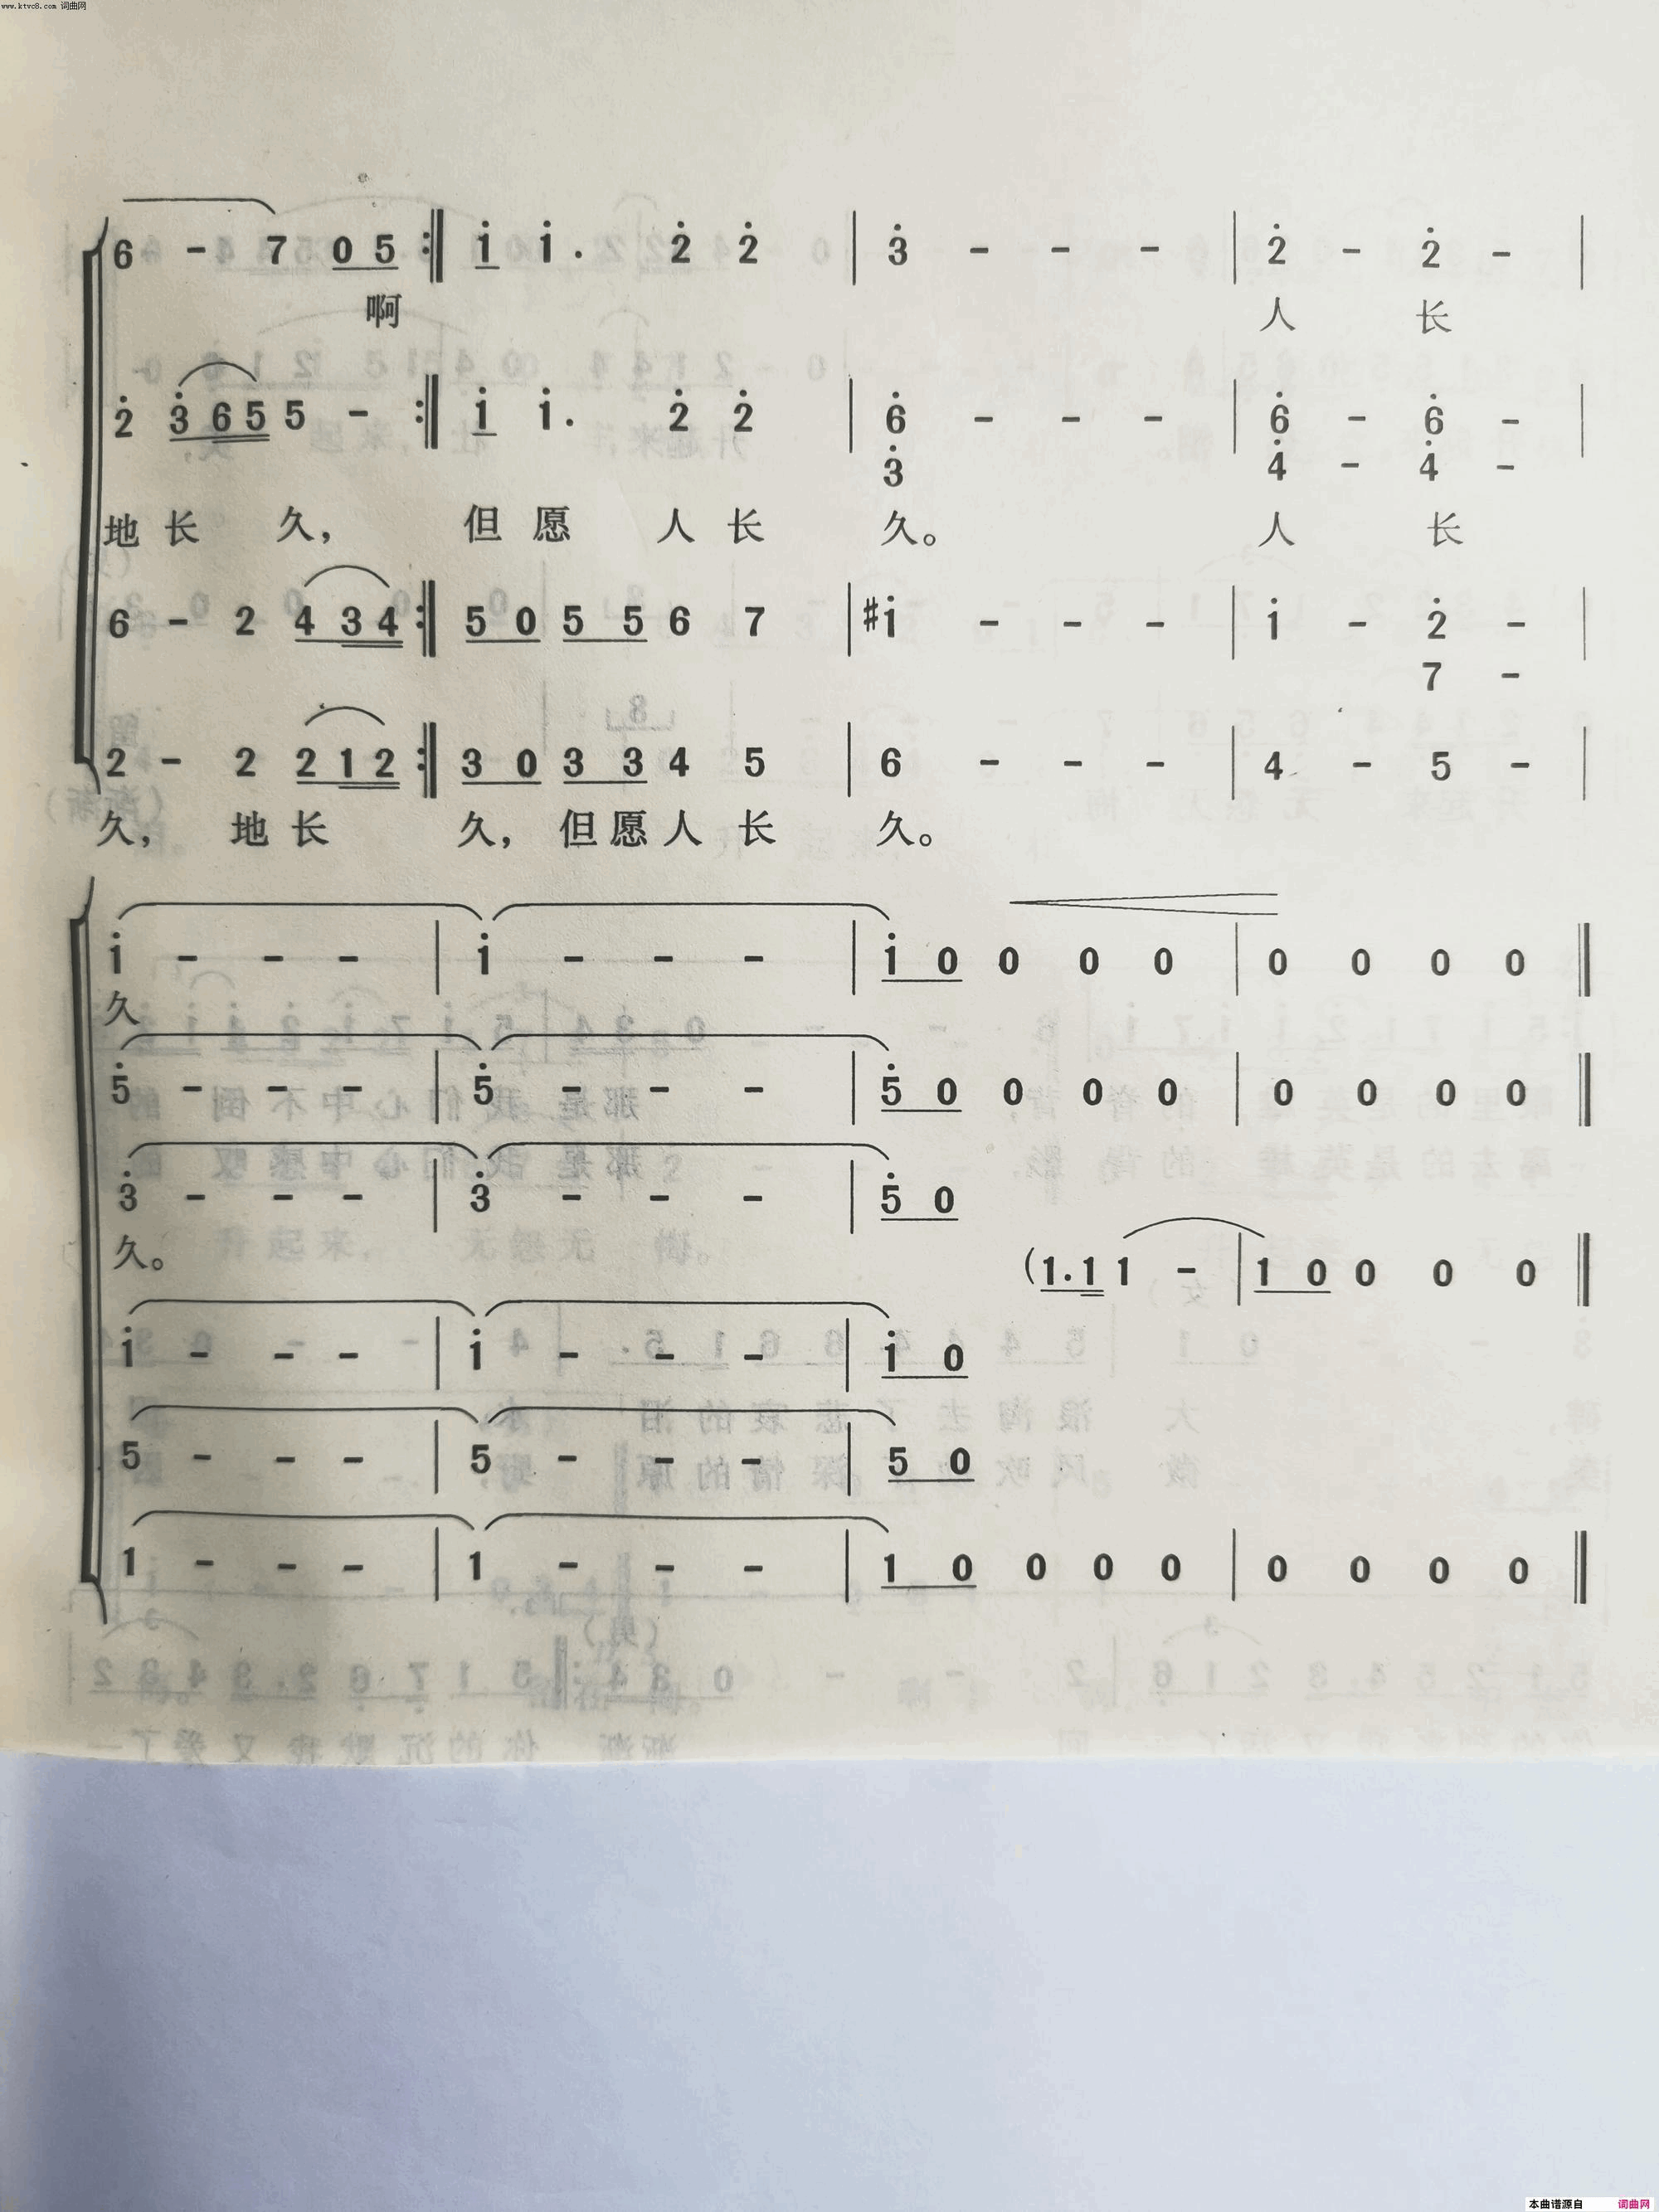 www.ktvc8.com 词曲网
6 - 7 0 5 :‖ i i . 2̇ 2̇ | 3̇ - - - | 2̇ - 2̇ - |
啊 人 长
2̇ 3̇ 6 5 5 - :‖ i i . 2̇ 2̇ | 6̇ - - - | 6̇ - 6̇ - |
3̇ 4̇ - 4̇ -
地 长 久, 但 愿 人 长 久。 人 长
6 - 2 4 3 4 :‖ 5 0 5 5 6 7 | #i - - - | i - 2̇ - |
7 -
2 - 2 2 1 2 :‖ 3 0 3 3 4 5 | 6 - - - | 4 - 5 - |
久, 地 长 久, 但 愿 人 长 久。
i - - - | i - - - | i 0 0 0 0 | 0 0 0 0 ‖
久
5̇ - - - | 5̇ - - - | 5̇ 0 0 0 0 | 0 0 0 0 ‖
3̇ - - - | 3̇ - - - | 5̇ 0
久。
(1.1 1 - | 1 0 0 0 0 ‖
i - - - | i - - - | i 0
5 - - - | 5 - - - | 5 0
1 - - - | 1 - - - | 1 0 0 0 0 | 0 0 0 0 ‖
本曲谱源自 词曲网